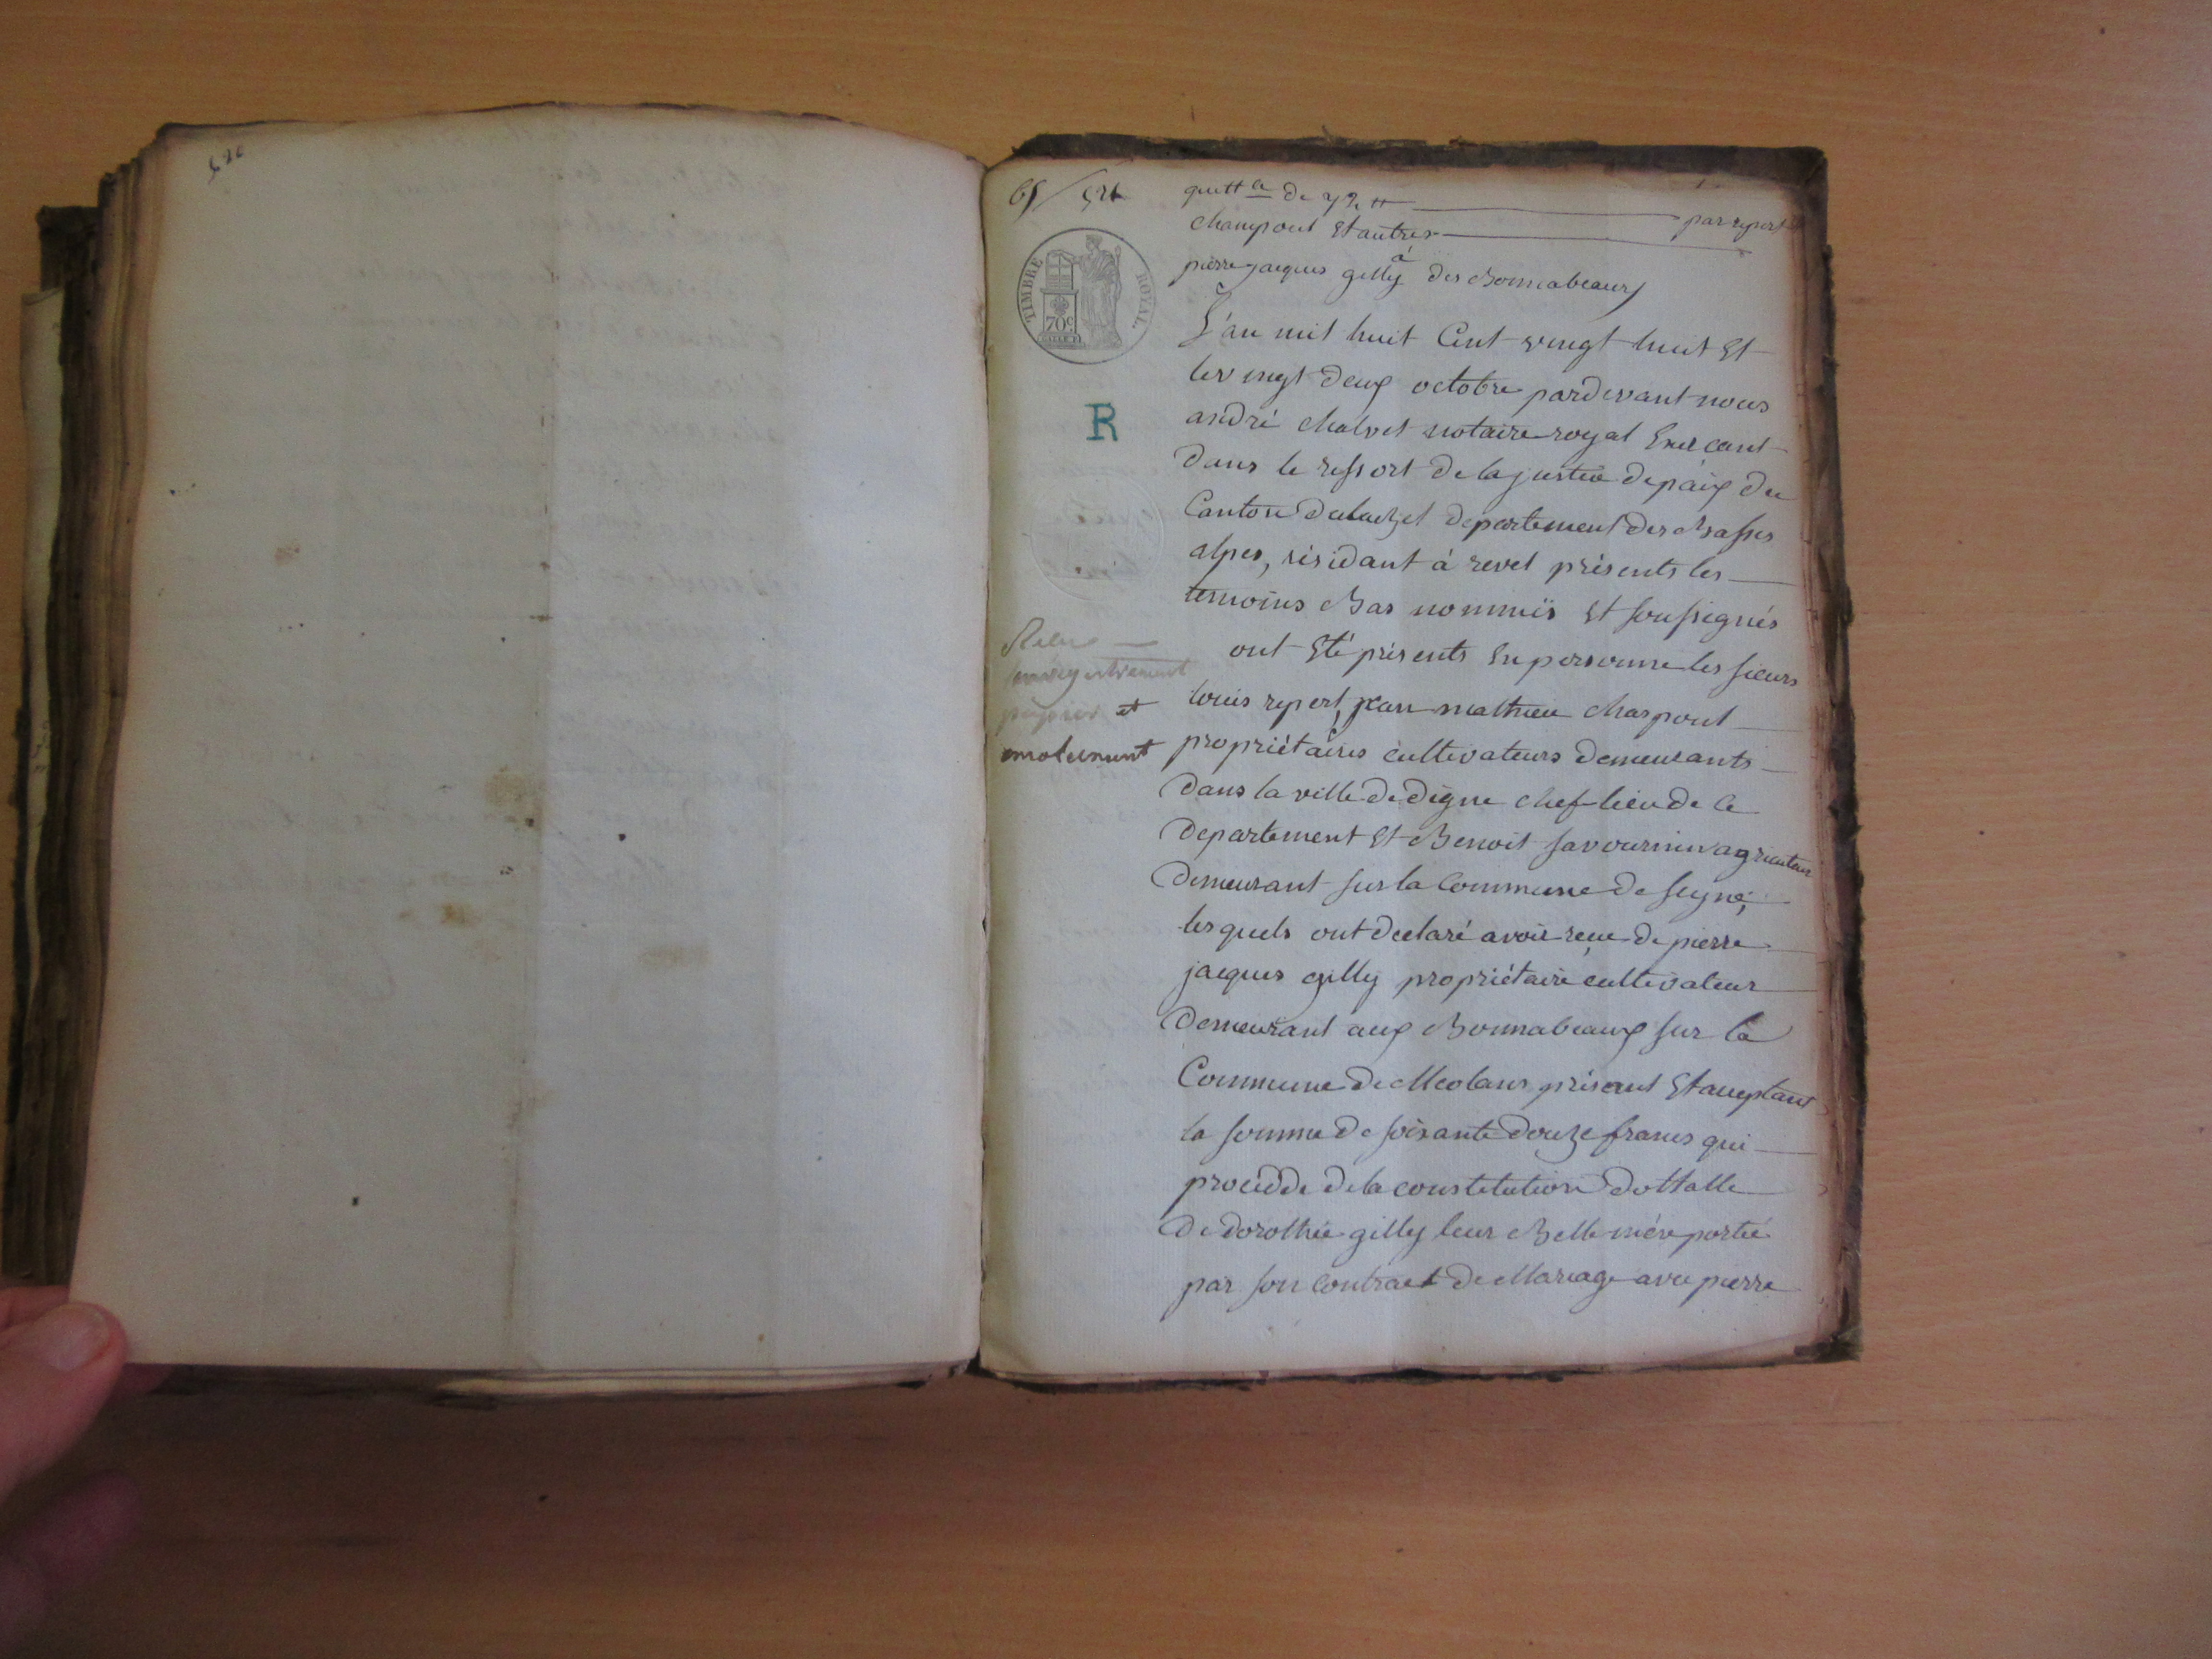 520
65 / 521
quitt ce de 72 tt par repert
Champout Et autres
à
pierre jacques gilly des Bonnabeaux
TIMBRE ROYAL.
70 c
R
L'an mil huit Cent vingt huit Et
le vingt deux octobre pardevant nous
andré Chalvet notaire royal Exerçant
dans le ressort de la justice de paix du
Canton du lauzet departement des Basses
alpes, résidant à revel présents les
temoins Bas nommés Et soussignés
ont Eté présents En personne les sieurs
louis repert, jean mathieu Chaspout
propriétaires cultivateurs demeurants
dans la ville de digne chef lieu de ce
departement Et Benoit savournin agriculteur
demeurant sur la Commune de seyne,
lesquels ont declaré avoir reçue de pierre
jacques gilly propriétaire cultivateur
demeurant aux Bonnabeaux sur la
Commune de Meolans présent Et acceptant
la somme de soixante douze francs qui
procédde de la constitution dottalle
de dorothée gilly leur Belle mére portée
par son contract de Mariage avec pierre
et
emolument